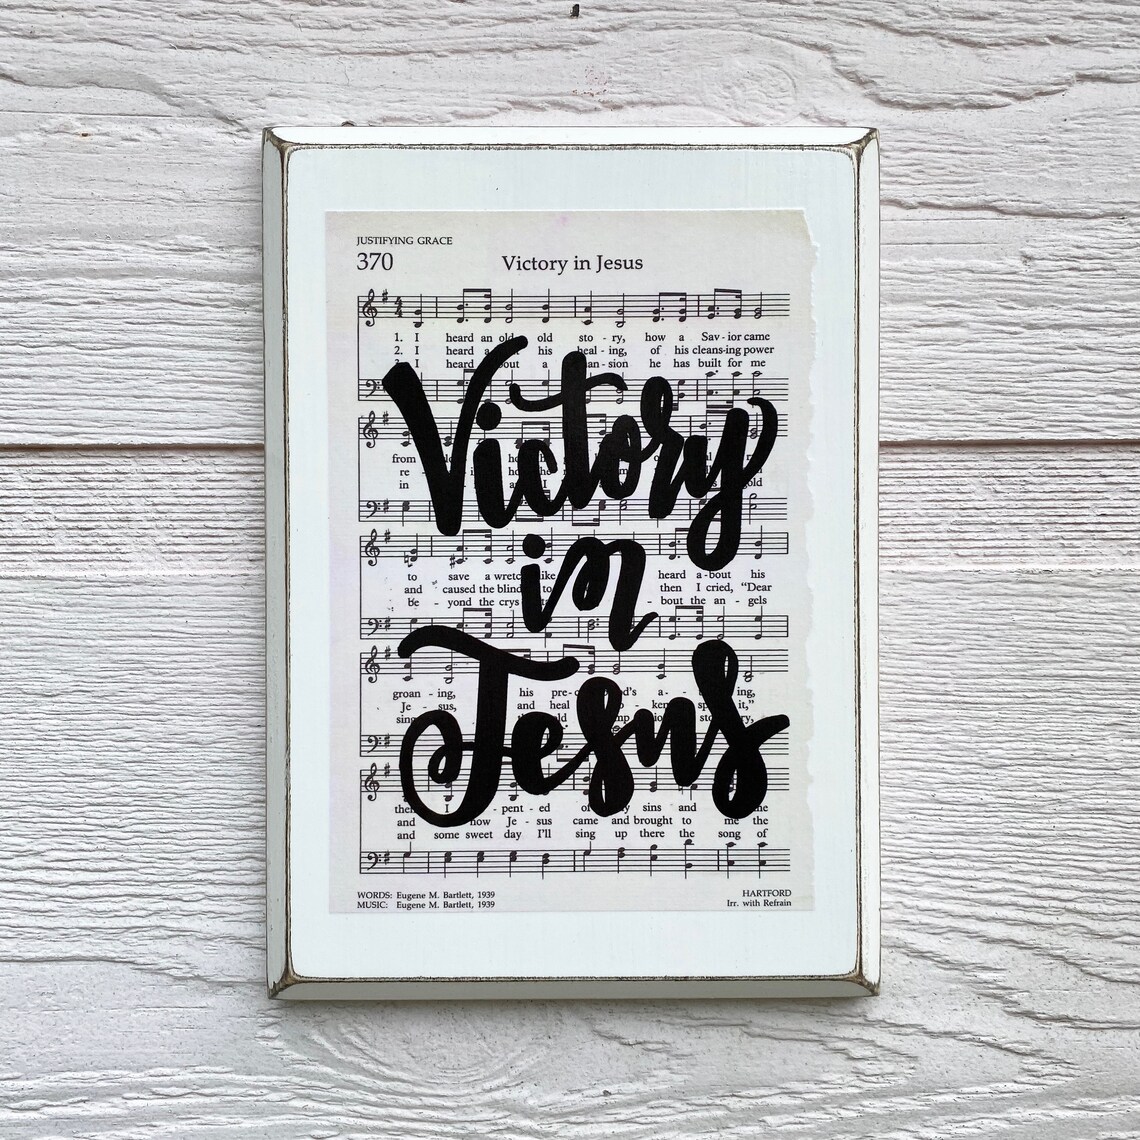 JUSTIFYING GRACE
370 Victory in Jesus
1. I heard an old, old sto - ry, how a Sav - ior came
2. I heard his heal - ing, of his cleans-ing power
I heard a he has built for me
Victory
from
re -
in gold
in
to save a wretch like heard a - bout his
and caused the blind to then I cried, “Dear
be - yond the bout the an - gels
Jesus
groan - ing, his pre- a - ing,
Je - sus, and heal
sing
I - pent - ed sins and
and how Je - sus came and brought to me the
and some sweet day I’ll sing up there the song of
WORDS: Eugene M. Bartlett, 1939 HARTFORD
MUSIC: Eugene M. Bartlett, 1939 Irr. with Refrain